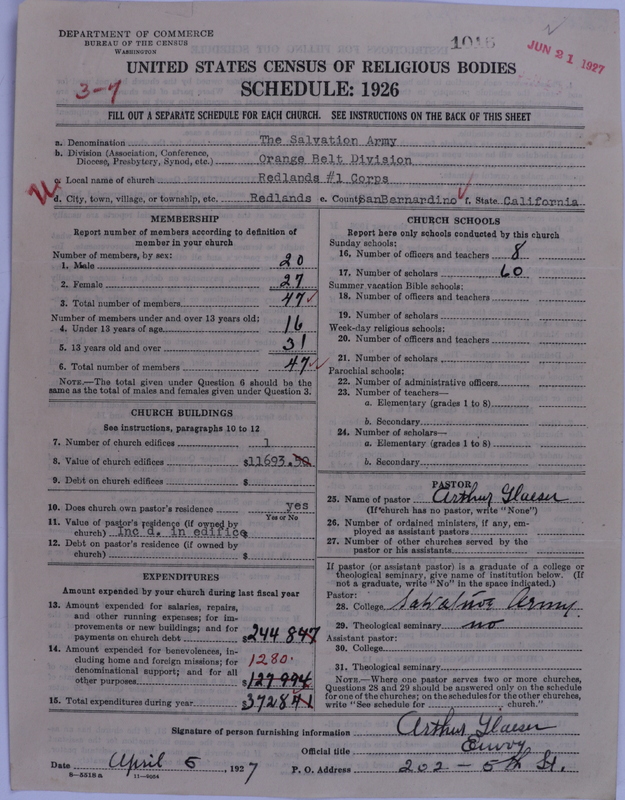 DEPARTMENT OF COMMERCE
BUREAU OF THE CENSUS
WASHINGTON
1016
JUN 21 1927
UNITED STATES CENSUS OF RELIGIOUS BODIES
3-7
SCHEDULE: 1926
FILL OUT A SEPARATE SCHEDULE FOR EACH CHURCH. SEE INSTRUCTIONS ON THE BACK OF THIS SHEET
a. Denomination The Salvation Army
b. Division (Association, Conference, Diocese, Presbytery, Synod, etc.) Orange Belt Division
c. Local name of church Redlands #1 Corps
d. City, town, village, or township, etc. Redlands e. County SanBernardino f. State California
MEMBERSHIP
Report number of members according to definition of
member in your church
Number of members, by sex:
1. Male 20
2. Female 27
3. Total number of members 47
Number of members under and over 13 years old:
4. Under 13 years of age 16
5. 13 years old and over 31
6. Total number of members 47
NOTE.—The total given under Question 6 should be the
same as the total of males and females given under Question 3.
CHURCH BUILDINGS
See instructions, paragraphs 10 to 12
7. Number of church edifices 1
8. Value of church edifices $11693.50
9. Debt on church edifices $
10. Does church own pastor's residence yes
Yes or No
11. Value of pastor's residence (if owned by
church) Inc d. in edifice $
12. Debt on pastor's residence (if owned by
church) $
EXPENDITURES
Amount expended by your church during last fiscal year
13. Amount expended for salaries, repairs,
and other running expenses; for im-
provements or new buildings; and for
payments on church debt $244847
14. Amount expended for benevolences, in-
cluding home and foreign missions; for 1280.
denominational support; and for all
other purposes $127994
15. Total expenditures during year $372841
CHURCH SCHOOLS
Report here only schools conducted by this church
Sunday schools:
16. Number of officers and teachers 8
17. Number of scholars 60
Summer vacation Bible schools:
18. Number of officers and teachers
19. Number of scholars
Week-day religious schools:
20. Number of officers and teachers
21. Number of scholars
Parochial schools:
22. Number of administrative officers
23. Number of teachers—
a. Elementary (grades 1 to 8)
b. Secondary
24. Number of scholars—
a. Elementary (grades 1 to 8)
b. Secondary
PASTOR
25. Name of pastor Arthur Glaeser
(If church has no pastor, write "None")
26. Number of ordained ministers, if any, em-
ployed as assistant pastors
27. Number of other churches served by the
pastor or his assistants
If pastor (or assistant pastor) is a graduate of a college or
theological seminary, give name of institution below. (If
not a graduate, write "No" in the space indicated.)
Pastor:
28. College Salvation Army
29. Theological seminary no
Assistant pastor:
30. College
31. Theological seminary
NOTE.—Where one pastor serves two or more churches,
Questions 28 and 29 should be answered only on the schedule
for one of the churches; on the schedules for the other churches,
write "See schedule for church."
Signature of person furnishing information Arthur Glaeser
Official title Envoy
Date April 5, 1927 P. O. Address 202 - 5th St.
8-5518 a 11-9004